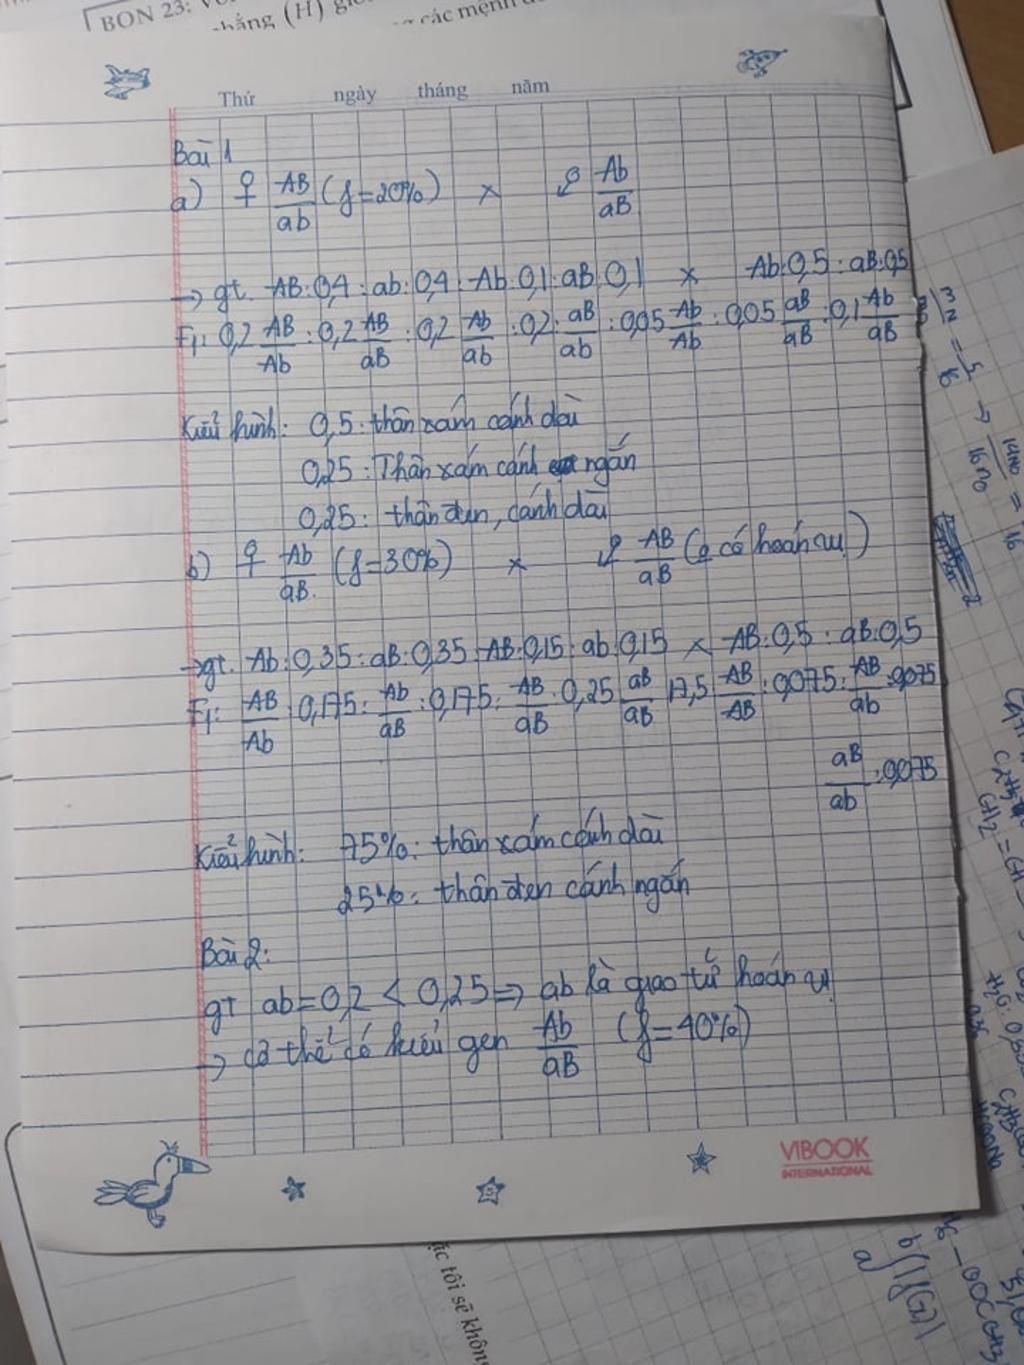 BON 23:
phẳng (H)
các mệnh
Thứ ngày tháng năm
Bài 1
a) ♀ AB/ab (f=20%) × ♂ Ab/aB
→ gt. AB:0,4 : ab:0,4 : Ab:0,1 : aB:0,1 × Ab:0,5 : aB:0,5
F1: 0,2 AB/Ab : 0,2 AB/aB : 0,2 Ab/ab : 0,2 : aB/ab : 0,05 Ab/Ab : 0,05 aB/aB : 0,1 Ab/aB
Kiểu hình: 0,5: thân xám cánh dài
0,25: Thân xám cánh ngắn
0,25: thân đen, cánh dài
b) ♀ Ab/aB (f=30%) × ♂ AB/aB (0 có hoán vị)
→ gt. Ab:0,35 : aB:0,35 : AB:0,15 : ab:0,15 × AB:0,5 : aB:0,5
F1: AB/Ab : 0,175 : Ab/aB : 0,175 : AB/aB : 0,25 aB/aB 17,5 AB/AB : 0,075 : AB/ab : 0,075
aB/ab : 0,075
Kiểu hình: 75%: thân xám cánh dài
25%: thân đen cánh ngắn
Bài 2:
gt ab = 0,2 < 0,25 => ab là giao tử hoán vị
→ cơ thể có kiểu gen Ab/aB (f=40%)
VIBOOK
INTERNATIONAL
ặc tôi sẽ không